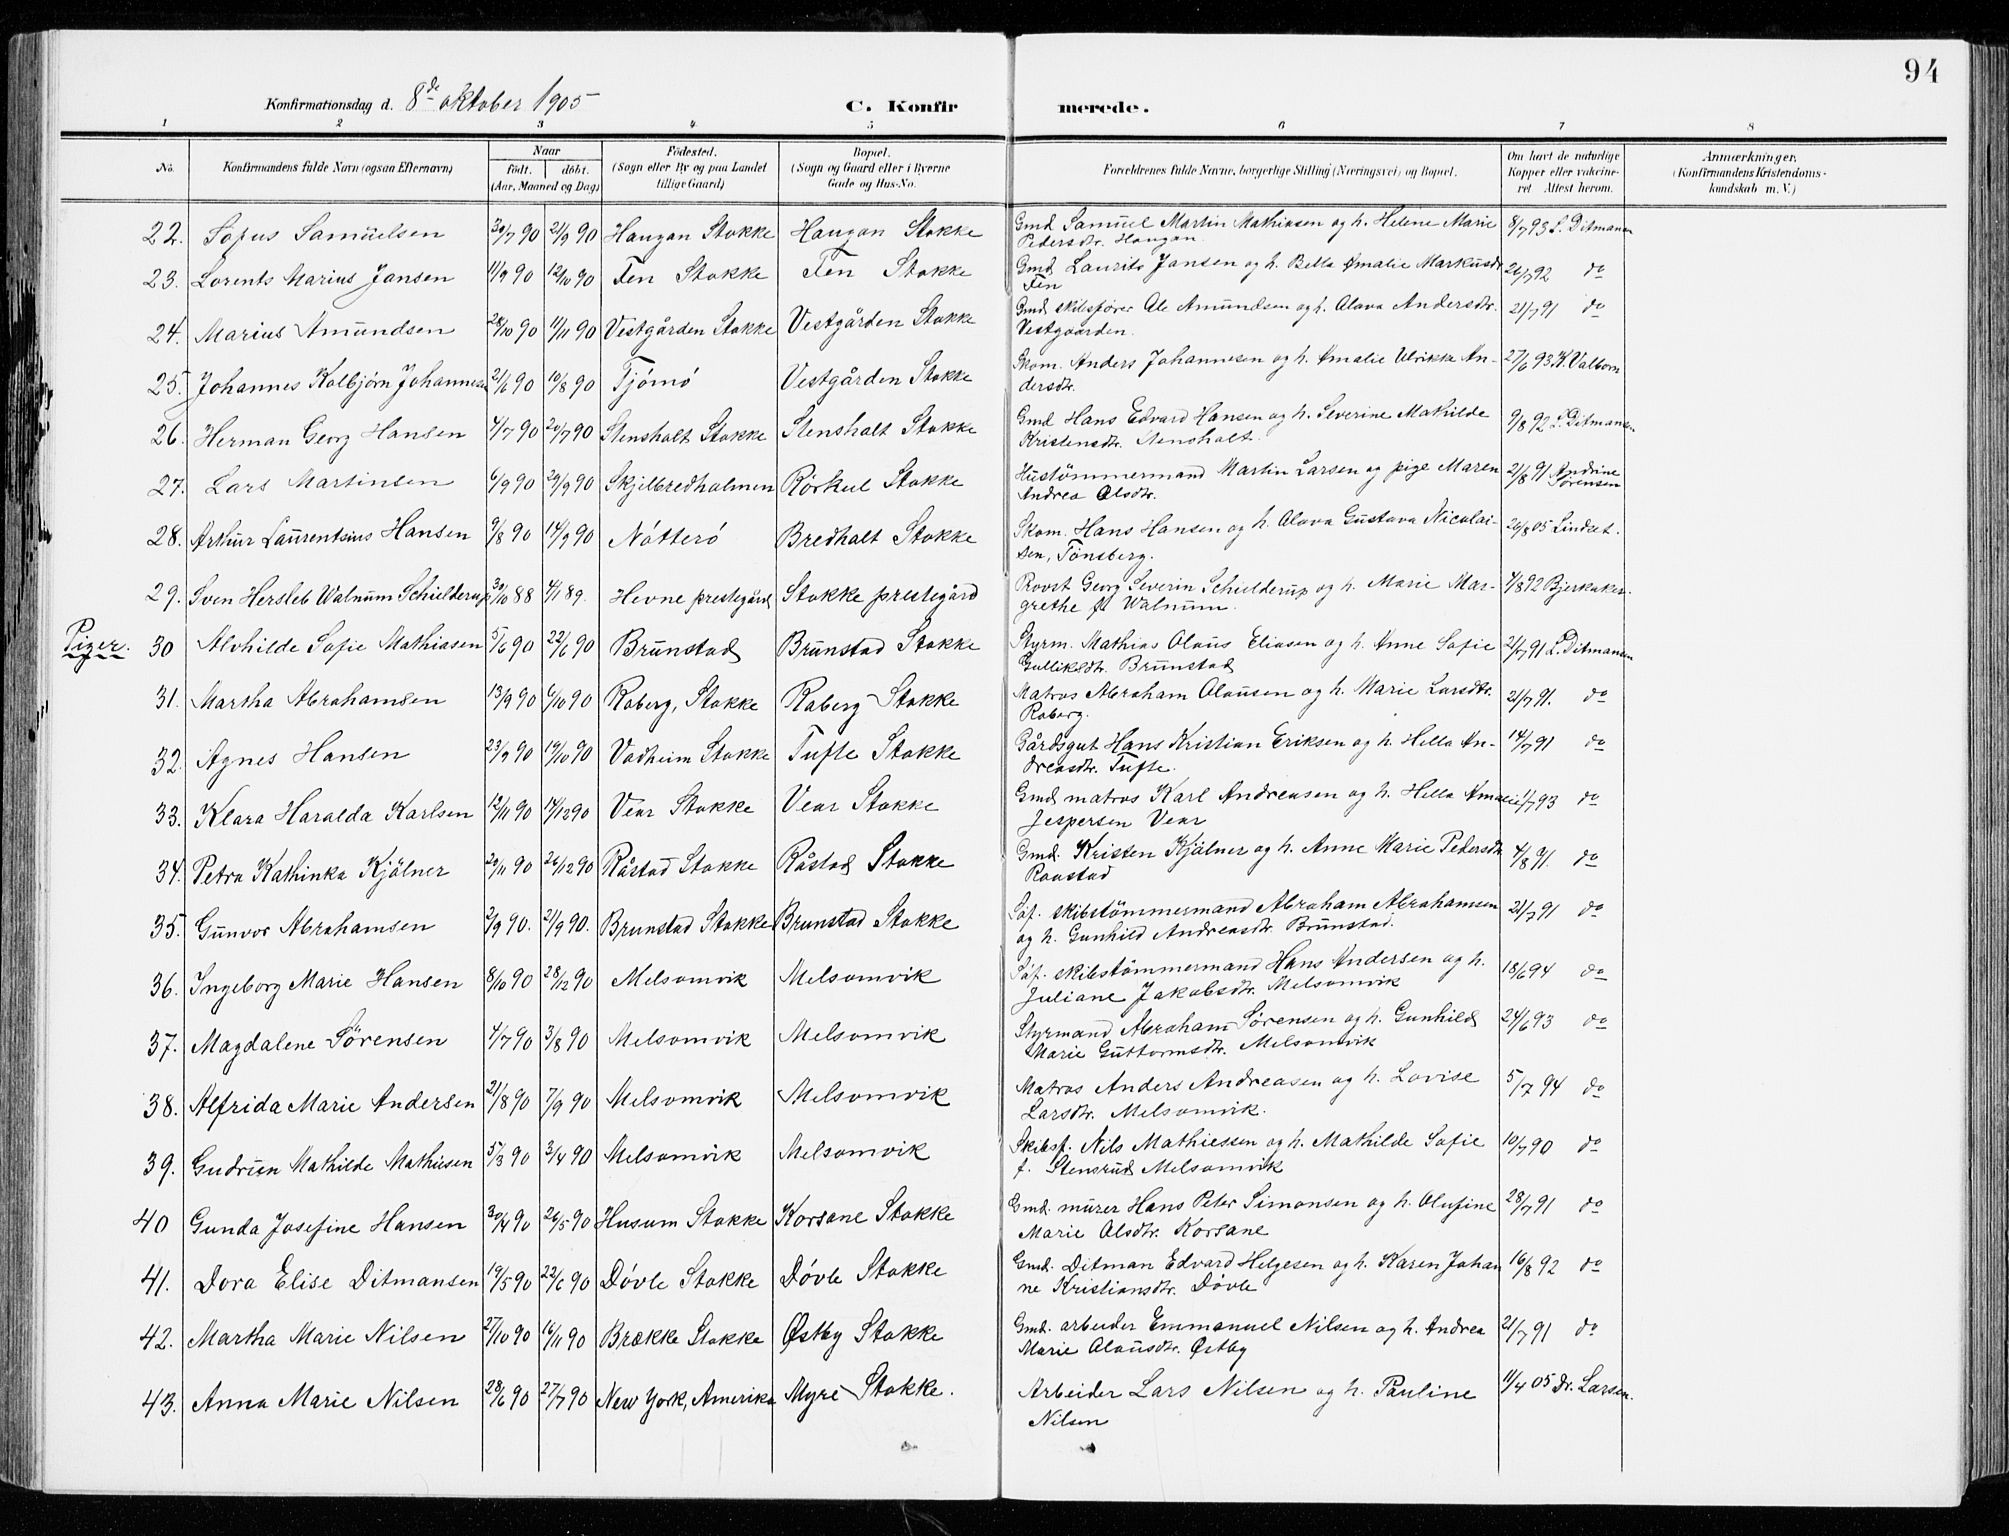 94
Konfirmationsdag d. 8de oktober 1905 C. Konfir merede.
1 2 3 4 5 6 7 8
No. Konfirmandens fulde Navn (ogsaa Efternavn) Naar født. døbt. (Aar, Maaned og Dag) Fødested. (Sogn eller By og paa Landet tillige Gaard) Bopæl. (Sogn og Gaard eller i Byerne Gade og Hus-No. Forældrenes fulde Navne, borgerlige Stilling (Næringsvei) og Bopæl. Om havt de naturlige Kopper eller vakcineret Attest herom. Anmærkninger. (Konfirmandens Kristendomskundskab m. V.)
22. Sofus Samuelsen 30/7 90 21/9 90 Haugan Stokke Haugan Stokke Gmd Samuel Martin Mathiasen og h. Helene Marie 8/7 93 L. Ditmansen
Pedersdtr. Haugan.
23. Lorents Marius Jansen 11/9 90 12/10 90 Fen Stokke Fen Stokke Gmd Laurits Jansen og h. Bella Amalie Markusdtr 26/7 92 do
Fen
24. Marius Amundsen 28/10 90 11/11 90 Vestgården Stokke Vestgården Stokke Gmd skibsfører Ole Amundsen og h. Olava Andersdtr. 21/7 91 do
Vestgaarden.
25. Johannes Kolbjörn Johannesen 21/6 90 10/8 90 Tjömö Vestgården Stokke Skom. Anders Johannesen og h. Amalie Ulrikke An- 27/6 93 K. Valborn
dersdtr.
26. Herman Georg Hansen 4/7 90 20/7 90 Stensholt Stokke Stensholt Stokke Gmd Hans Edvard Hansen og h. Severine Mathilde 9/8 92 L. Ditmansen
Kristensdtr. Stensholt.
27. Lars Martinsen 6/9 90 29/9 90 Skjelbredholmen Rörkul Stokke Hustömmermand Martin Larsen og pige Maren 21/8 91 Andrine Sørensen
Andrea Olsdtr.
28. Arthur Laurentsius Hansen 9/8 90 14/9 90 Nötterö Bredholt Stokke Skom. Hans Hansen og h. Olava Gustava Nicolai- 26/8 05 Lindset.
sen, Tönsberg.
29. Sven Hersleb Walnum Schielderup 30/10 88 4/1 89. Hevne prestegård Stokke prestegård Provst Georg Severin Schielderup og h. Marie Mar- 4/8 92 Bjerkaker.
grethe f. Walnum.
Piger. 30 Alvhilde Sofie Mathiasen 5/6 90 22/6 90 Brunstad Brunstad Stokke Styrm. Mathias Olaus Eliasen og h. Anne Sofie 21/7 91 L. Ditmansen
Gulliksdtr. Brunstad
31. Martha Abrahamsen 13/9 90 6/10 90 Raberg, Stokke Raberg Stokke Matros Abraham Olausen og h. Marie Larsdtr. 21/7 91. do
Raberg.
32. Agnes Hansen 23/9 90 19/10 90 Vadheim Stokke Tufte Stokke Gårdsgut Hans Kristian Eriksen og h. Hella An- 14/7 91 do
dreasdtr. Tufte.
33. Klara Haralda Karlsen 12/11 90 14/12 90 Vear Stokke Vear Stokke Gmd matros Karl Andreasen og h. Hella Amalie 1/7 93 do
Jespersen Vear
34. Petra Kathinka Kjölner 20/11 90 26/12 90 Råstad Stokke Råstad Stokke Gmd. Kristen Kjölner og h. Anne Marie Pedersdtr 4/8 91. do
Raastad
35. Gunvor Abrahamsen 2/9 90. 21/9 90. Brunstad Stokke Brunstad Stokke Söf. skibstömmermand Abraham Abrahamsen 21/7 91 do
og h. Gunhild Andreasdtr. Brunstad.
36. Ingeborg Marie Hansen 8/10 90 28/12 90 Melsomvik Melsomvik Söf. skibstömmermand Hans Andersen og h. 18/6 94 do
Juliane Jakobsdtr. Melsomvik
37. Magdalene Sörensen 4/7 90 3/8 90 Melsomvik Melsomvik Styrmand Abraham Sörensen og h. Gunhild 24/6 93 do
Marie Guttormsdtr. Melsomvik
38. Alfrida Marie Andersen 21/8 90 7/9 90 Melsomvik Melsomvik Matros Anders Andreasen og h. Lovise 5/7 94 do
Larsdtr. Melsomvik.
39. Gudrun Mathilde Mathiesen 5/3 90 3/4 90 Melsomvik Melsomvik Skibsf. Nils Mathiessen og h. Mathilde Sofie 10/7 90 do
f. Stensrud Melsomvik
40 Gunda Josefine Hansen 30/4 90 26/5 90 Husum Stokke Korsane Stokke Gmd. murer Hans Peter Simonsen og h. Olufine 28/7 91 do
Marie Olsdtr. Korsane
41. Dora Elise Ditmansen 19/5 90 22/6 90 Dövle Stokke Dövle Stokke Gmd. Ditman Edvard Helgesen og h. Karen Johan 16/8 92 do
ne Kristiansdtr. Dövle
42. Martha Marie Nilsen 27/10 90 16/11 90 Brække Stokke Østby Stokke Gmd. arbeider Emmanuel Nilsen og h. Andrea 21/7 91 do
Marie Olausdtr. Østby
43. Anna Marie Nilsen 28/6 90 27/7 90 New York, Amerika Myre Stokke. Arbeider Lars Nilsen og h. Pauline 11/4 05 Dr. Larsen.
Nilsen